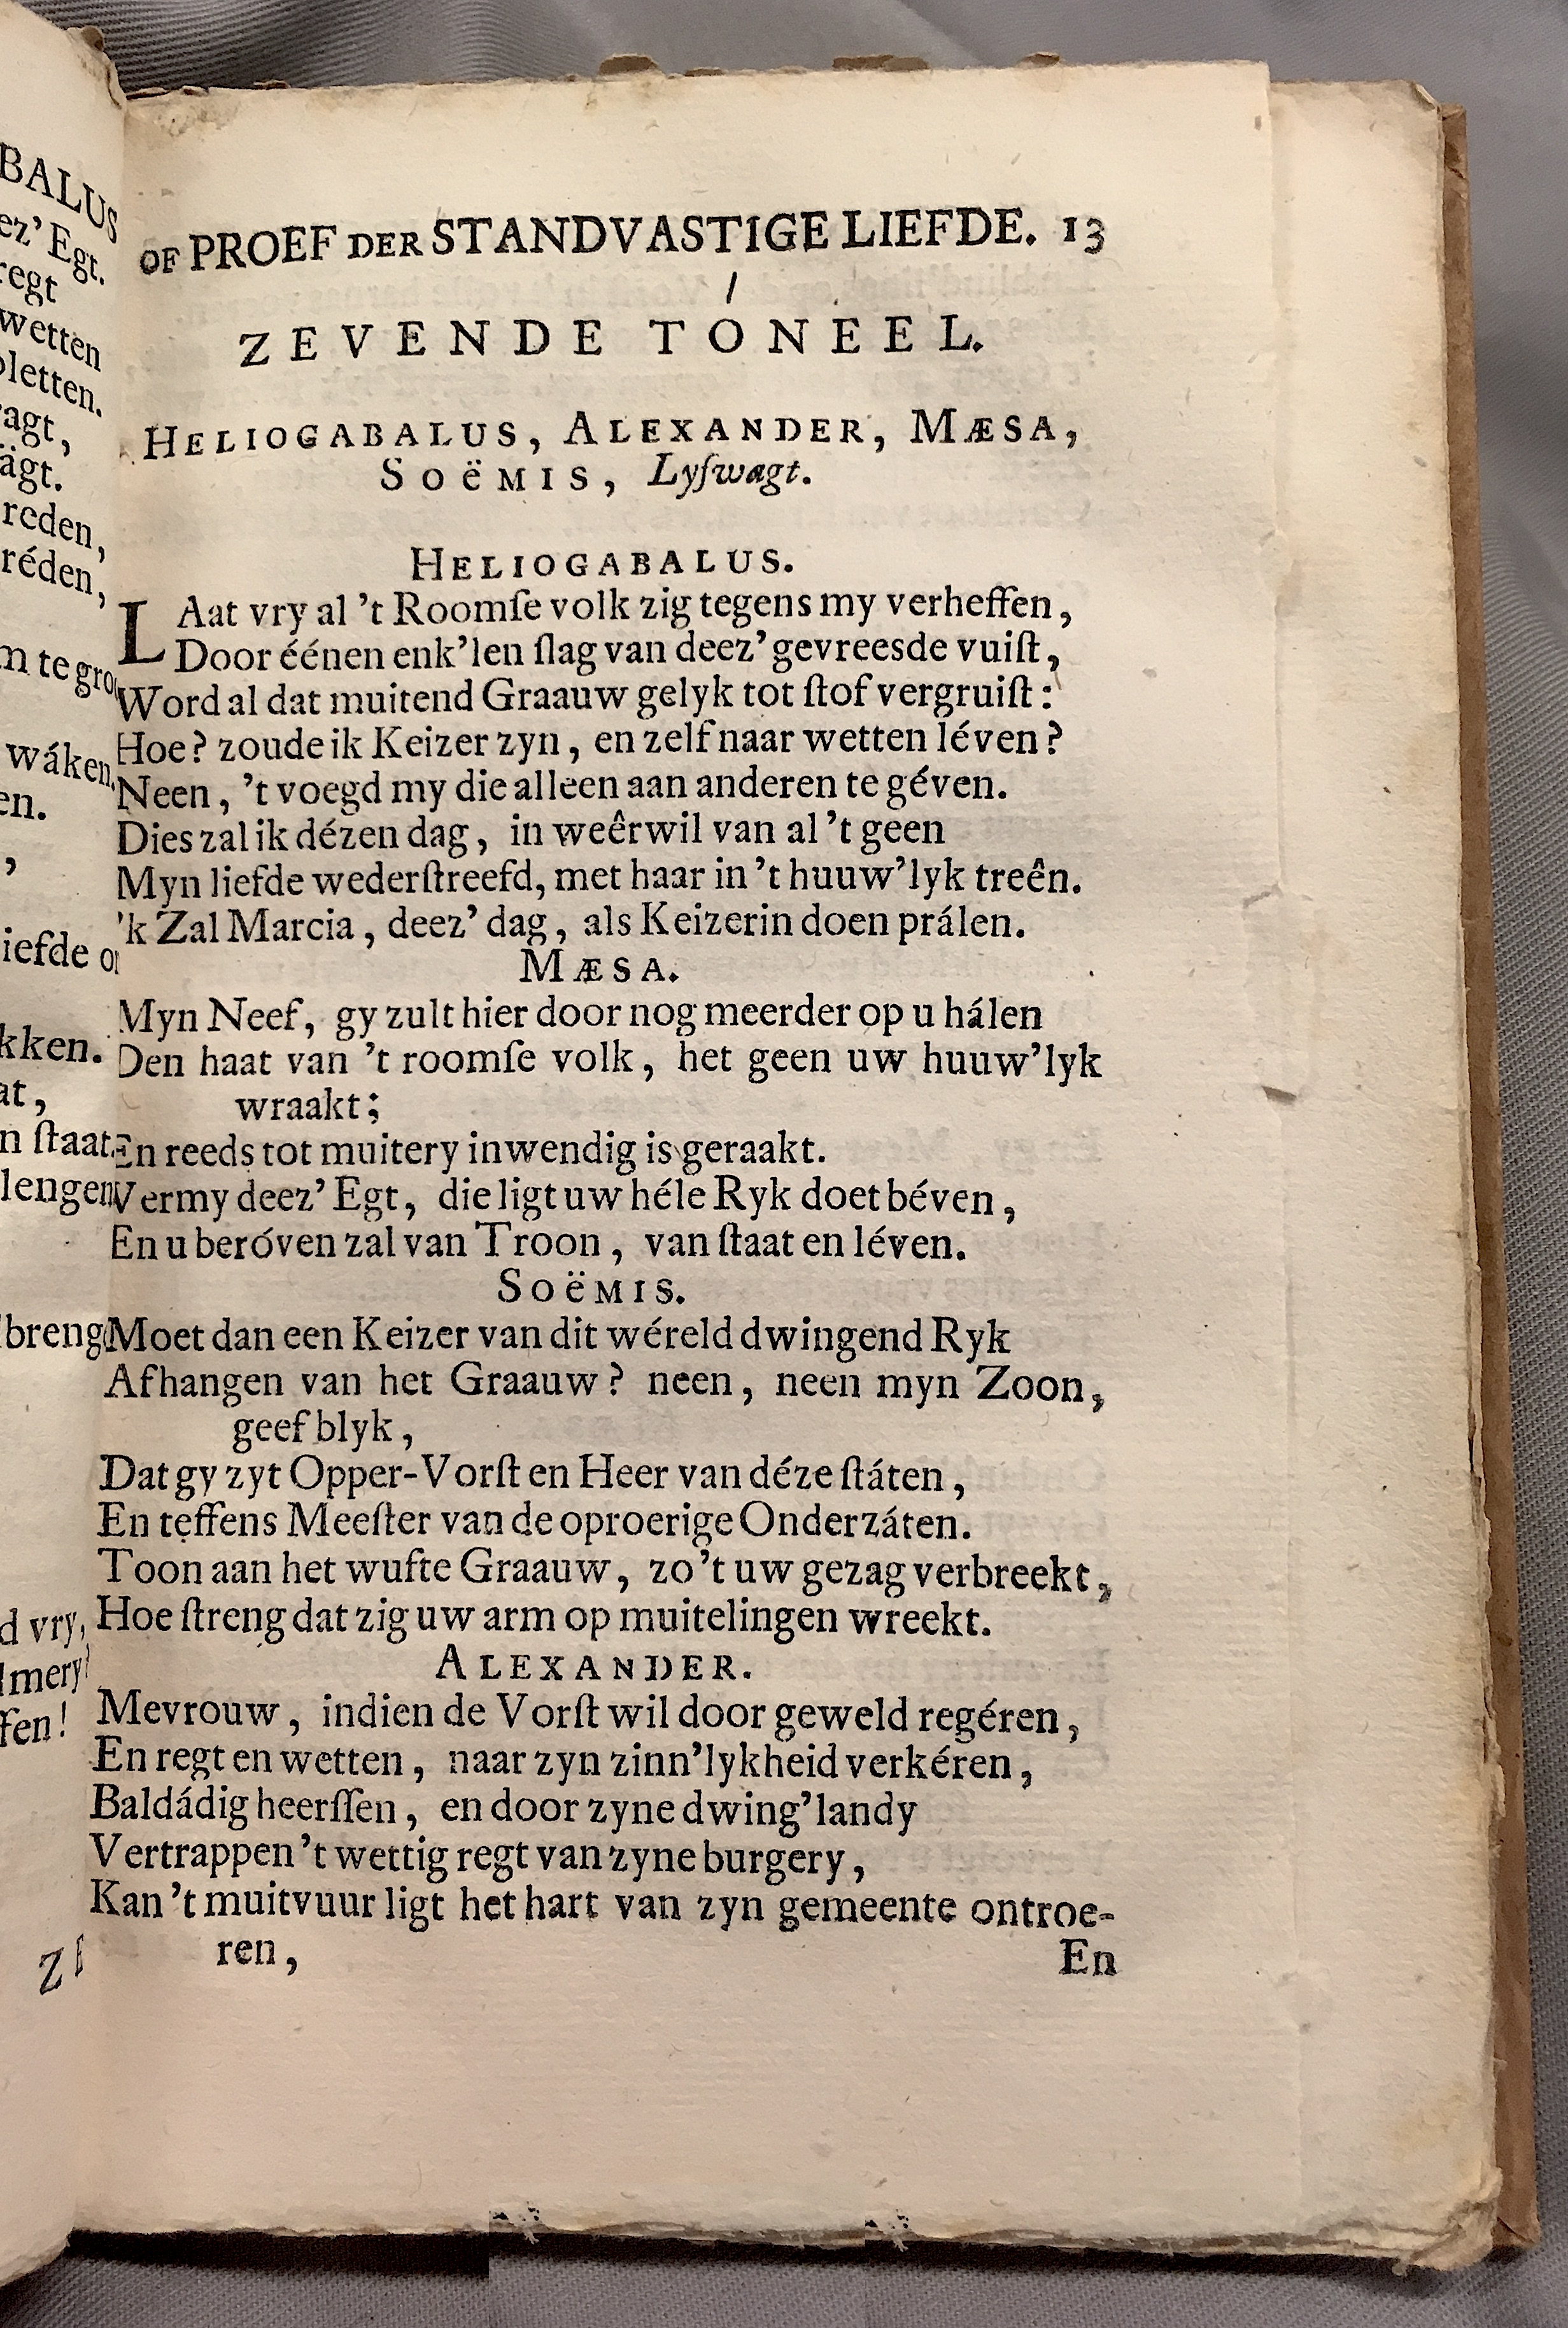 OF PROEF DER STANDVASTIGE LIEFDE. 13
ZEVENDE TONEEL.
HELIOGABALUS, ALEXANDER, MÆSA,
SOëMIS, Lyſwagt.
HELIOGABALUS.
LAat vry al 't Roomſe volk zig tegens my verheffen,
Door éénen enk'len ſlag van deez' gevreesde vuiſt,
Word al dat muitend Graauw gelyk tot ſtof vergruiſt:
Hoe? zoude ik Keizer zyn, en zelf naar wetten léven?
Neen, 't voegd my die alleen aan anderen te géven.
Dies zal ik dézen dag, in weêrwil van al 't geen
Myn liefde wederſtreefd, met haar in 't huuw'lyk treên.
'k Zal Marcia, deez' dag, als Keizerin doen prálen.
MÆSA.
Myn Neef, gy zult hier door nog meerder op u hálen
Den haat van 't roomſe volk, het geen uw huuw'lyk
wraakt;
En reeds tot muitery inwendig is geraakt.
Vermy deez' Egt, die ligt uw héle Ryk doet béven,
En u beróven zal van Troon, van ſtaat en léven.
SOëMIS.
Moet dan een Keizer van dit wéreld dwingend Ryk
Afhangen van het Graauw? neen, neen myn Zoon,
geef blyk,
Dat gy zyt Opper-Vorſt en Heer van déze ſtáten,
En teffens Meeſter van de oproerige Onderzáten.
Toon aan het wufte Graauw, zo 't uw gezag verbreekt,
Hoe ſtreng dat zig uw arm op muitelingen wreekt.
ALEXANDER.
Mevrouw, indien de Vorſt wil door geweld regéren,
En regt en wetten, naar zyn zinn'lykheid verkéren,
Baldádig heerſſen, en door zyne dwing'landy
Vertrappen 't wettig regt van zyne burgery,
Kan 't muitvuur ligt het hart van zyn gemeente ontroe-
ren,
En
BALUS
ez' Egt.
regt
wetten
pletten.
agt,
ägt.
reden,
réden,
m te gro
wáken,
en.
,
iefde o
kken.
at,
n ſtaat.
lengen
breng
d vry,
mery
fen!